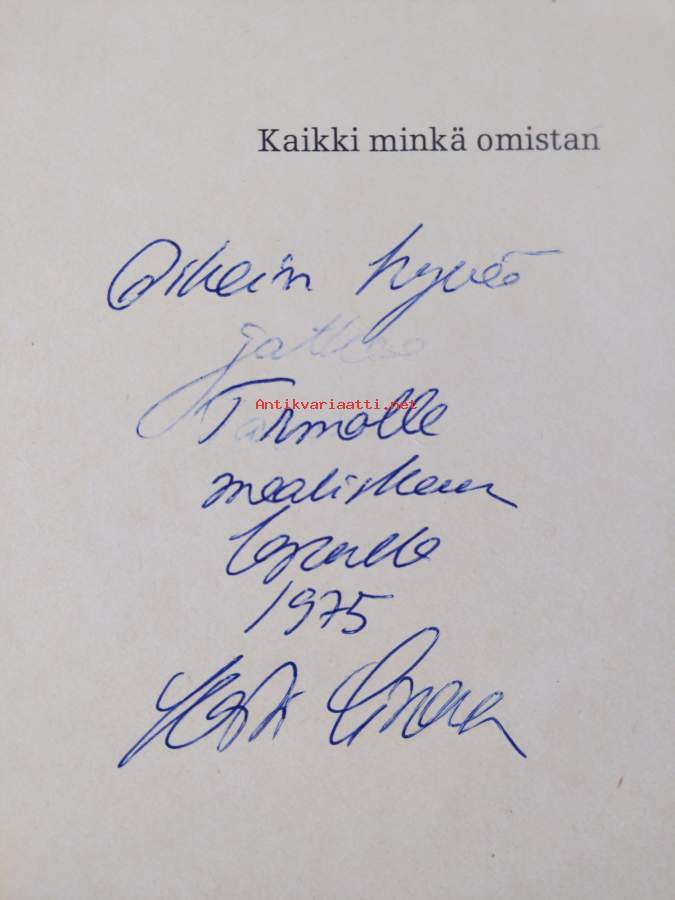 Kaikki minkä omistan
Oikein hyvää
jatkoa
Antikvariaatti.net
Tarmolle
maaliskuun
lopulla
1975